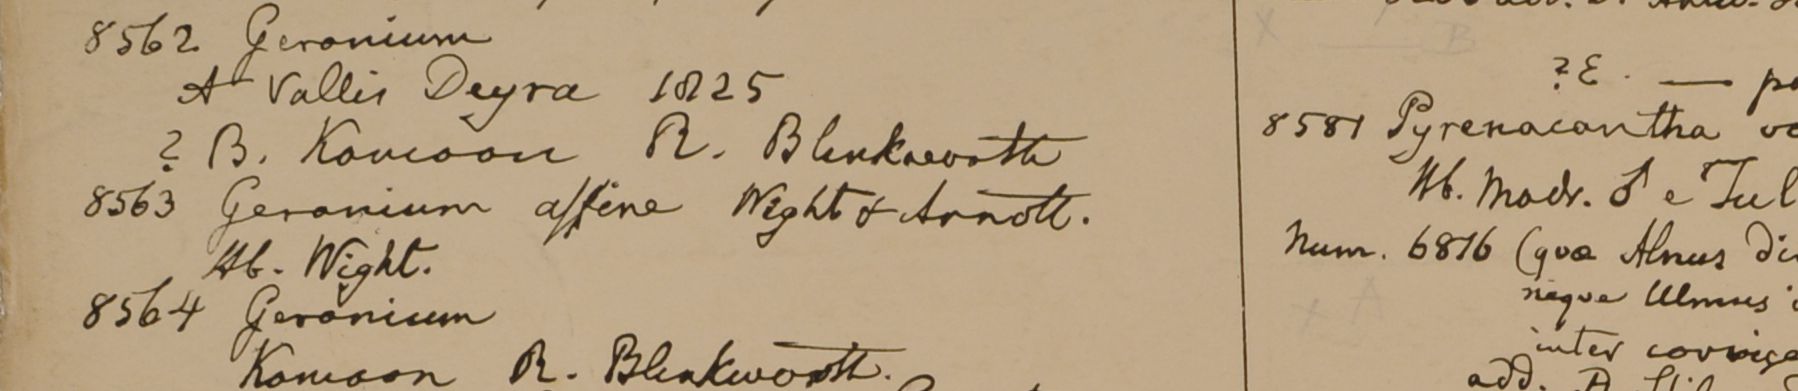 8562 Geranium
A Vallis Deyra 1825
? B. Kamoon R. Blinkworth
8563 Geranium affine Wight & Arnott.
Hb. Wight.
8564 Geranium
Kamaon R. Blinkworth.
B
? E. — 
8581 Pyrenacantha
Hb. Madr. ♂ e
Num. 6816 (quæ Alnus
neque Ulmus
inter
add.